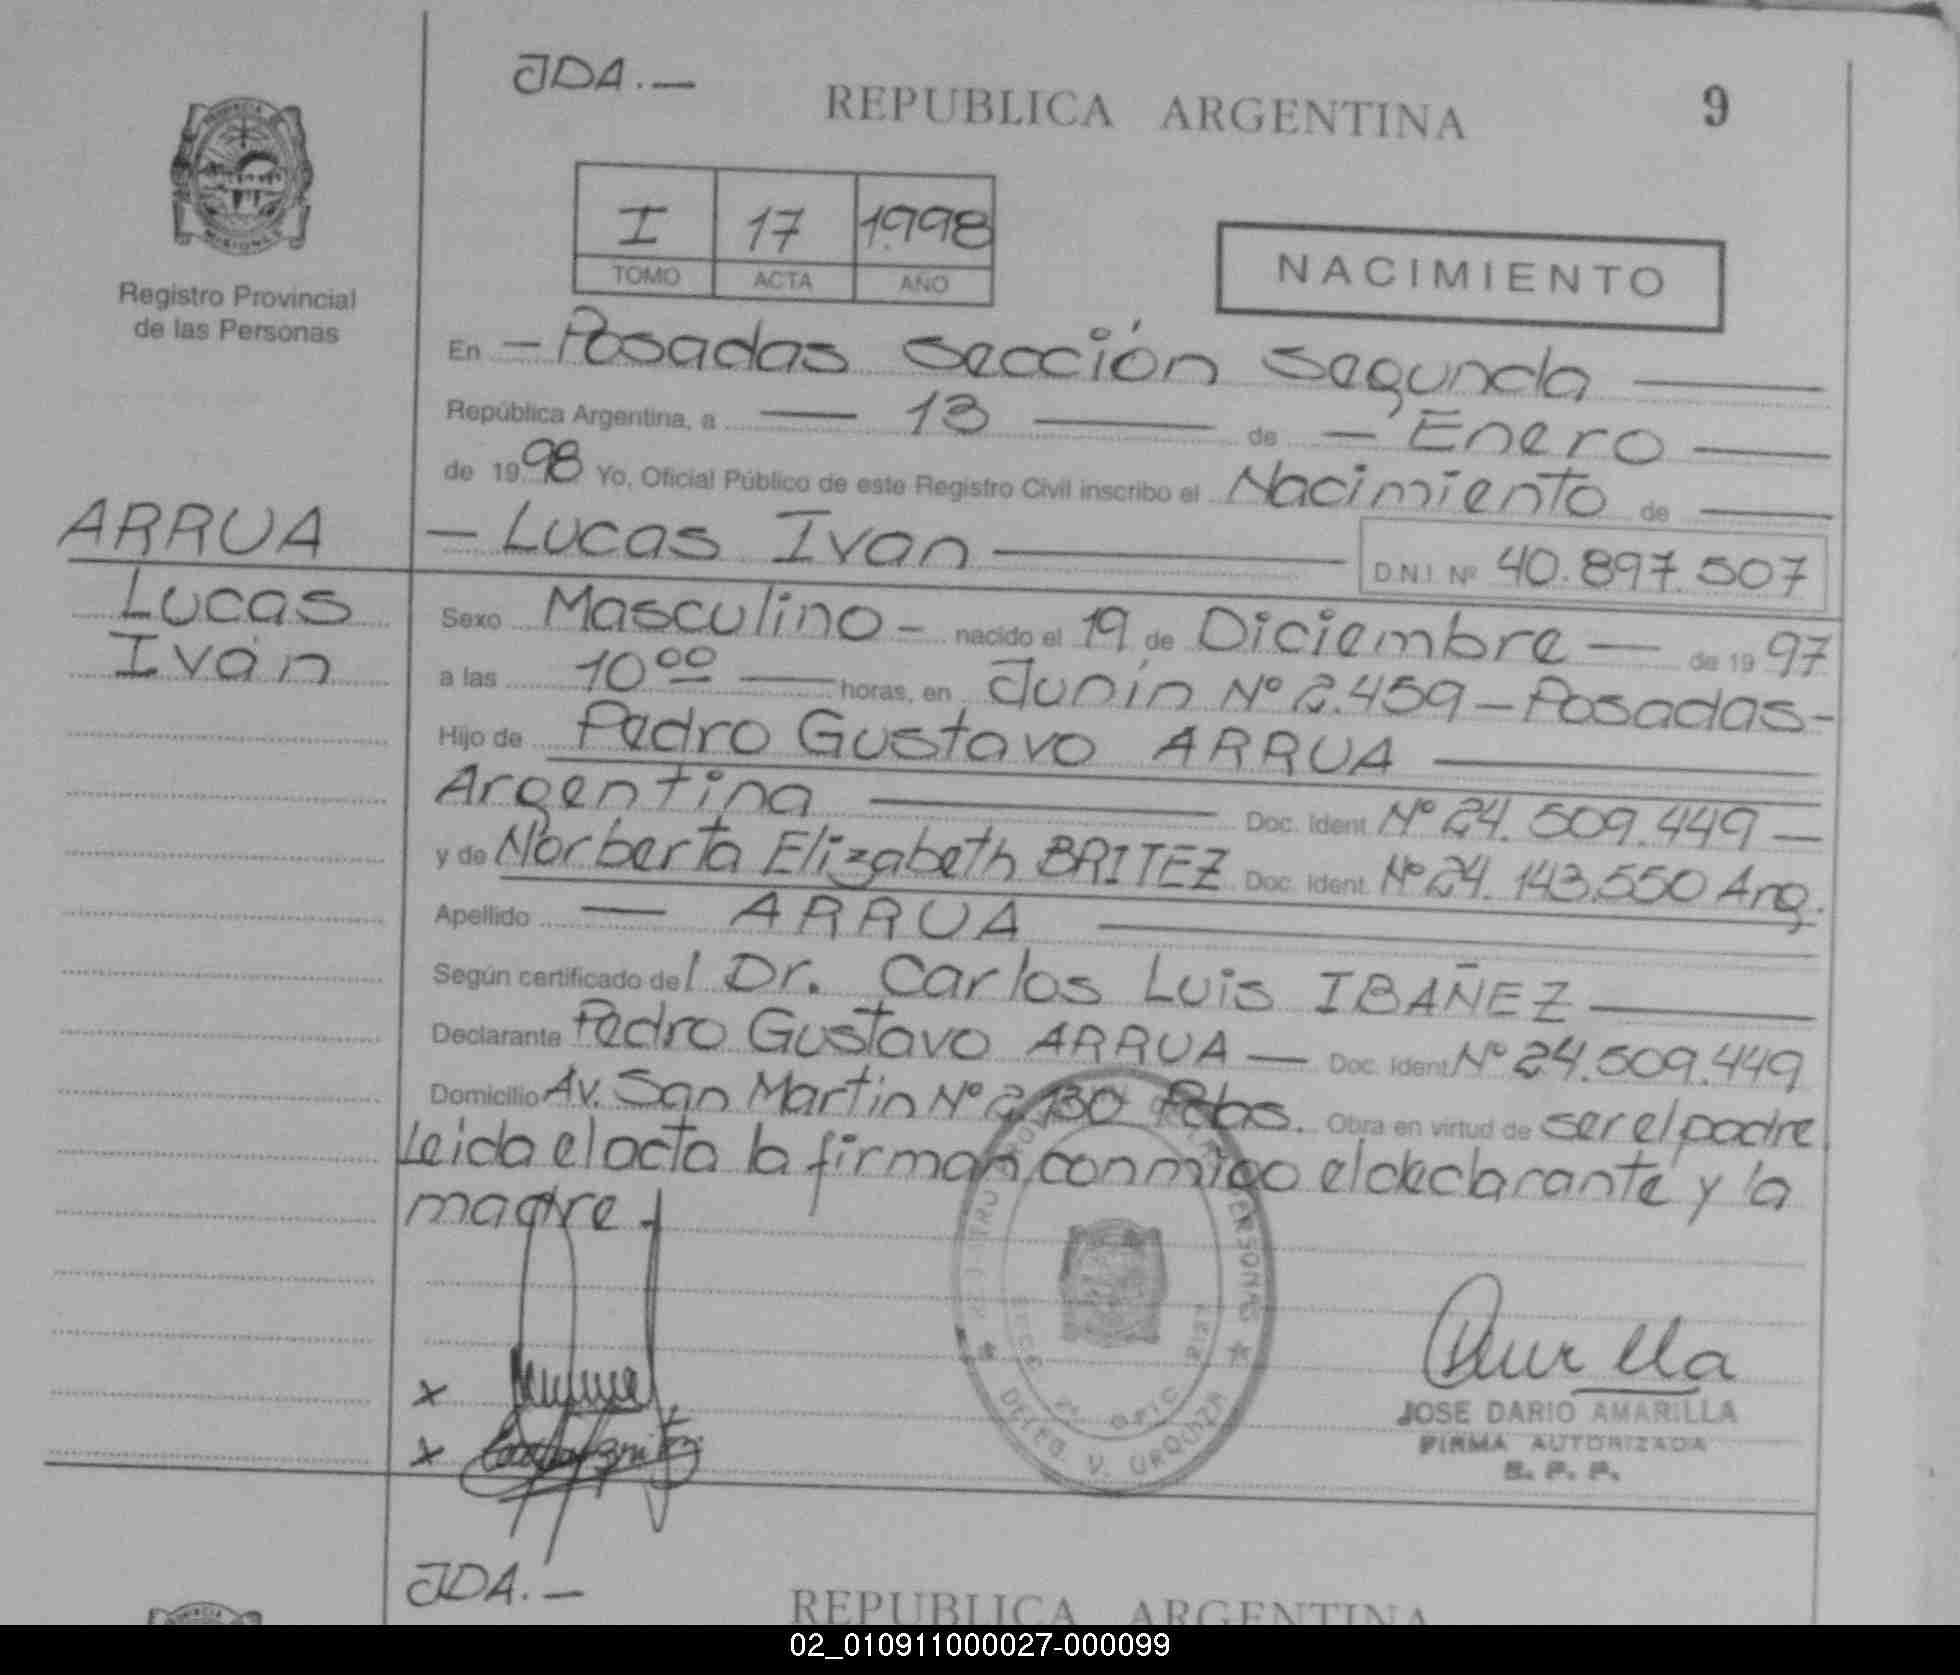 JDA.—
REPUBLICA ARGENTINA
9
PROVINCIA
MISIONES
Registro Provincial
de las Personas
I 17 1.998
TOMO ACTA AÑO
NACIMIENTO
En — Posadas sección segunda —
República Argentina, a — 13 — de — Enero —
de 1998 Yo, Oficial Público de este Registro Civil inscribo el Nacimiento de —
ARRUA
Lucas
Iván
— Lucas Ivan — D.N.I. Nº 40.897.507
Sexo Masculino — nacido el 19 de Diciembre — de 1997
a las 10 00 — horas, en Junín Nº 2.459 — Posadas —
Hijo de Pedro Gustavo ARRUA —
Argentina — Doc. Ident. Nº 24.509.449 —
y de Norberta Elizabeth BRITEZ Doc. Ident. Nº 24.143.550 Arg.
Apellido — ARRUA —
Según certificado del Dr. Carlos Luis IBAÑEZ —
Declarante Pedro Gustavo ARRUA — Doc. Ident. Nº 24.509.449
Domicilio Av. San Martin Nº 2.130 Pdas. Obra en virtud de ser el padre.
Leida el acta la firman conmigo el declarante y la
madre.
x
x
DELEG. V. URQUIZA
JOSE DARIO AMARILLA
FIRMA AUTORIZADA
R. P. P.
JDA.—
REPUBLICA ARGENTINA
02_010911000027-000099